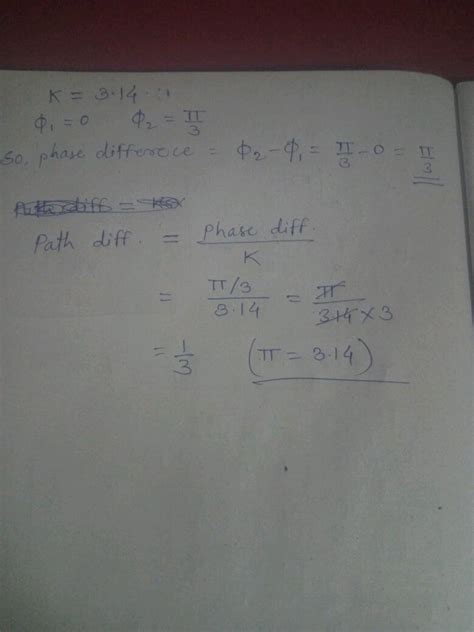 K = 3.14
Φ₁ = 0 Φ₂ = π/3
So, phase difference = Φ₂ - Φ₁ = π/3 - 0 = π/3
Path diff. = phase diff. / K
= π/3 / 3.14 = π / 3.14 × 3
= 1/3 (π = 3.14)